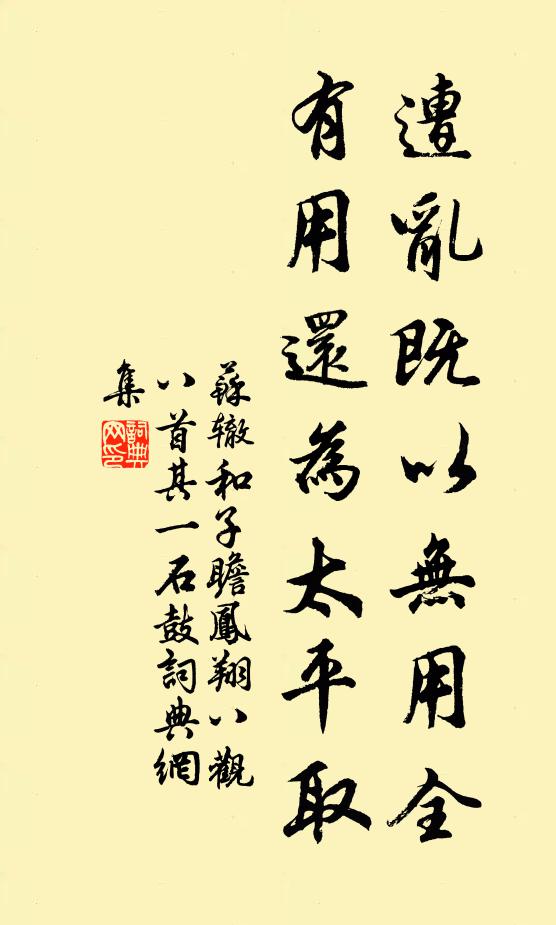 遭亂既以無用全
有用還為太平取
蘇辙和子瞻鳳翔八觀
八首其一石鼓詞典網
集
詞典網印